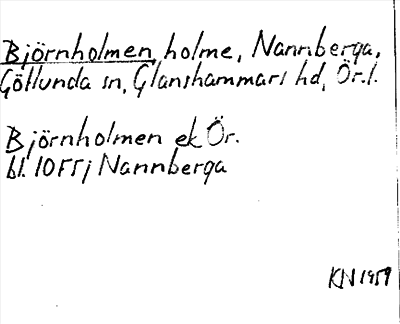 Björnholmen, holme, Nannberga,
Götlunda sn, Glanshammars hd, Ör.l.
Björnholmen ek Ör.
bl. 10FTj Nannberga
KN 1959